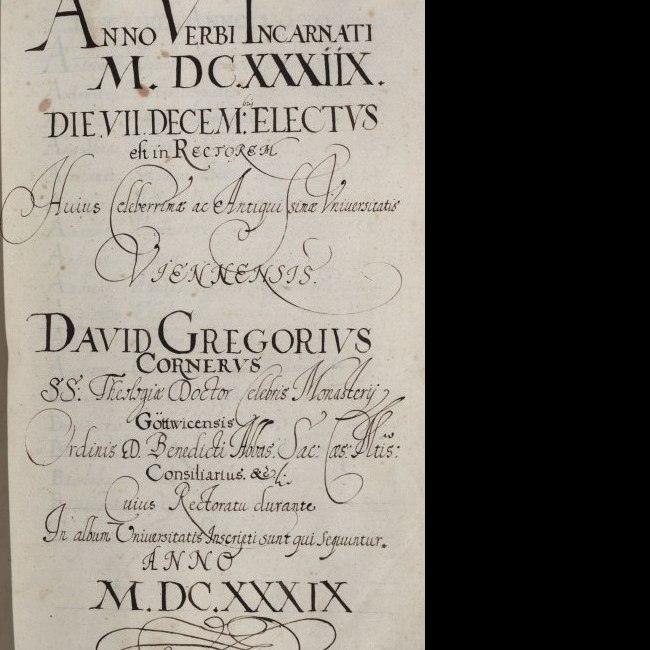 ANNO VERBI INCARNATI
M. DC.XXXIIX.
DIE.VII.DECEM:bris ELECTVS
est in RECTOREM
Huius Celeberrimæ ac Antiquissimæ Vniuersitatis
VIENNENSIS.
DAVID GREGORIVS
CORNERVS
SS: Theologiæ Doctor Celebris Monasterij
Göttwicensis
Ordinis D. Benedicti Abbas. Sac: Cæs: Mtis:
Consiliarius. &c:
Cuius Rectoratu durante
In album Vniuersitatis Inscripti sunt qui sequuntur.
ANNO
M. DC.XXXIX